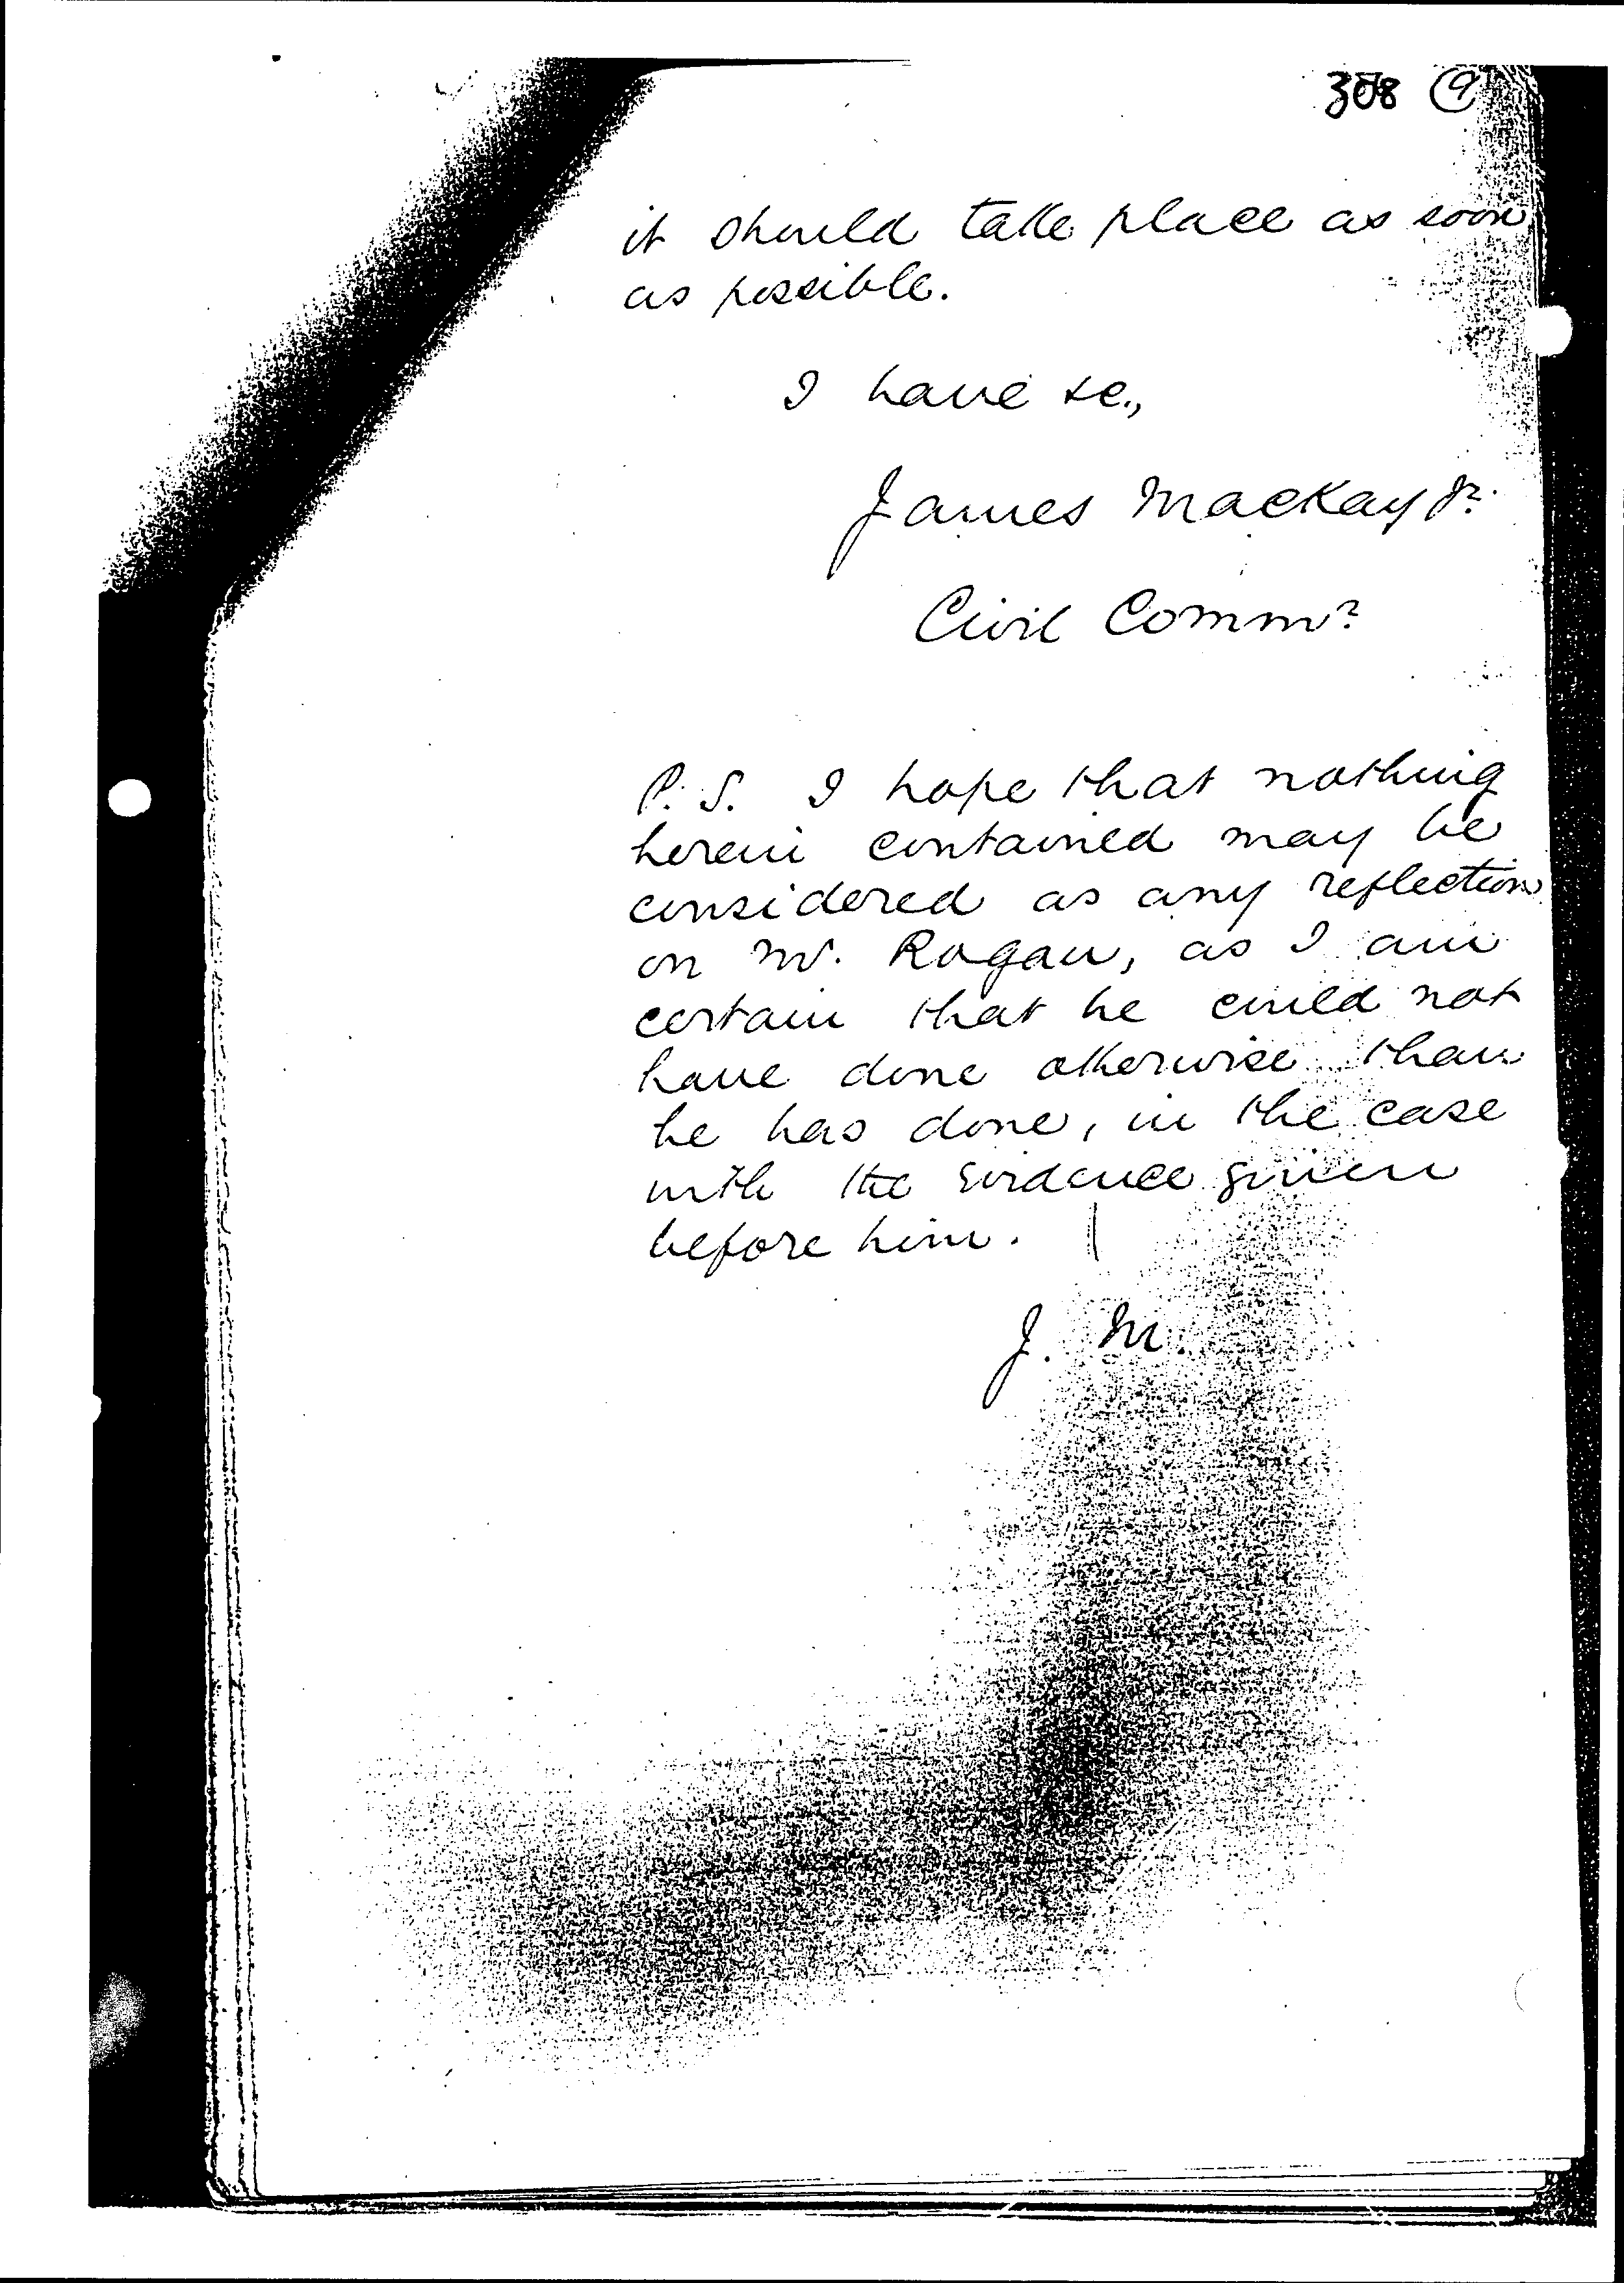 308 9
it should take place as soon
as possible.
I have &c.,
James Mackay Jr.
Civil Commr.
P.S. I hope that nothing
herein contained may be
considered as any reflection
on Mr. Rogan, as I am
certain that he could not
have done otherwise than
he has done, in the case
with the evidence given
before him.
J. M.